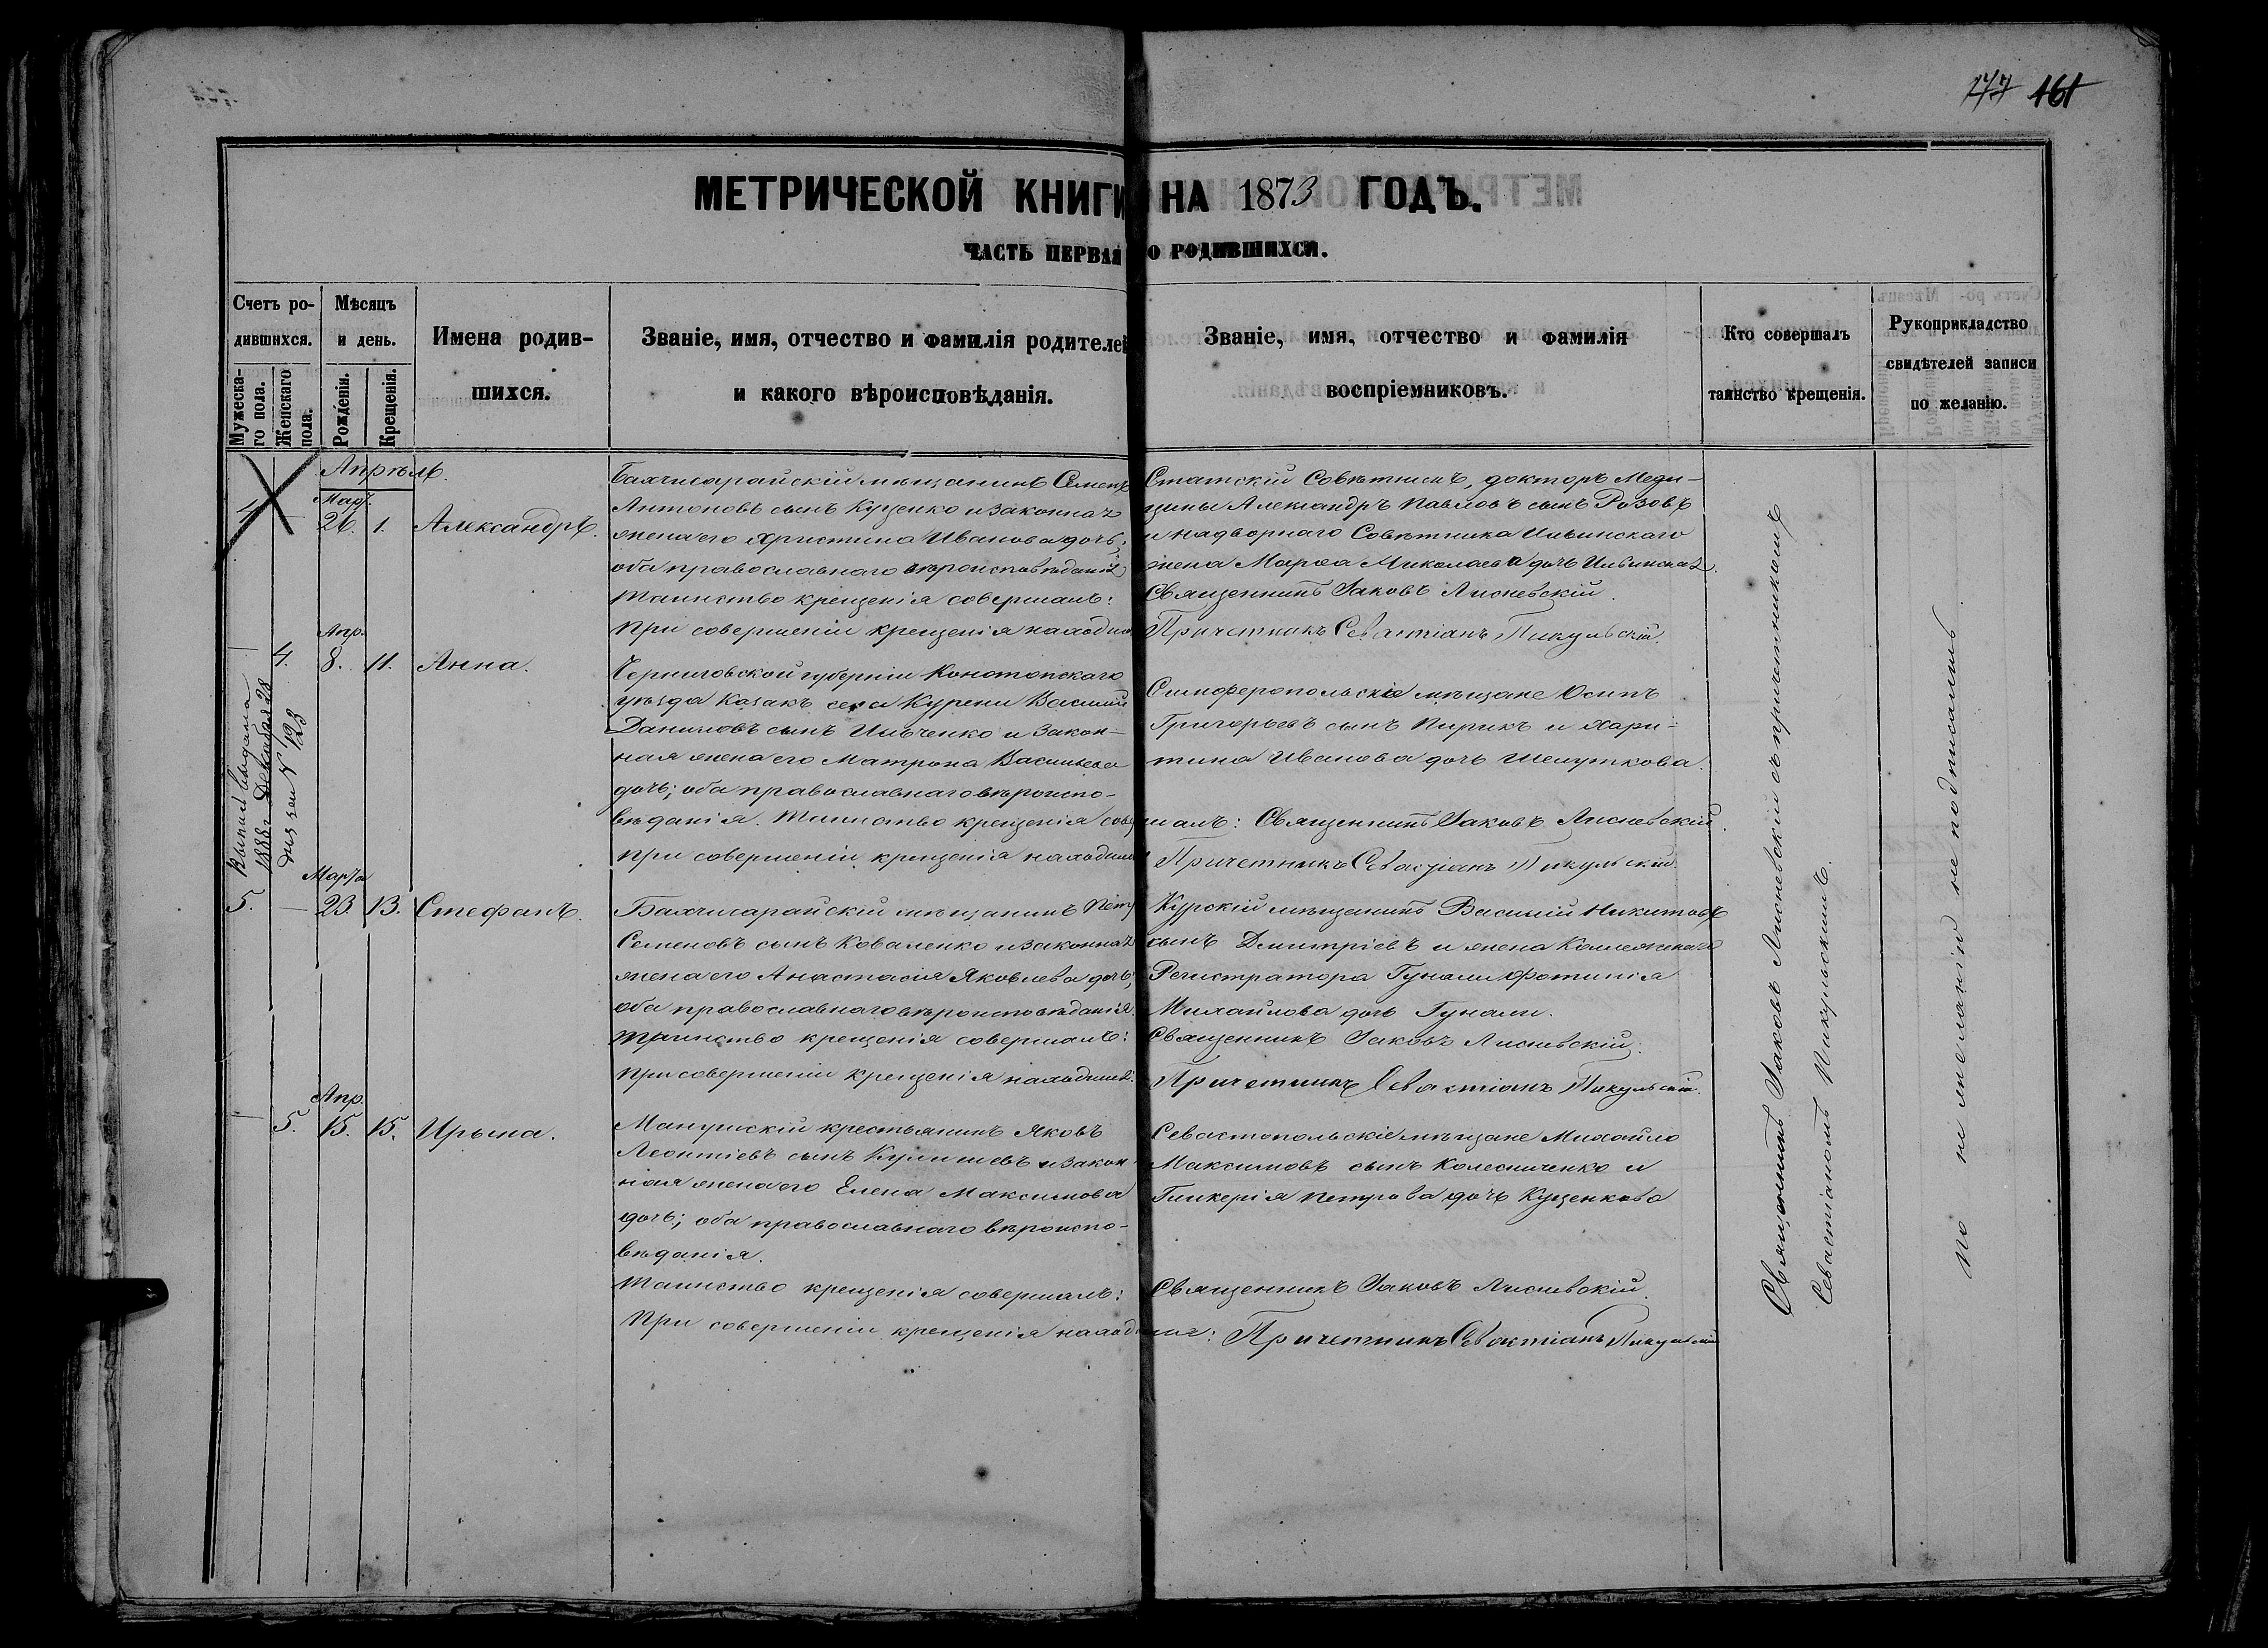 177 161
МЕТРИЧЕСКОЙ КНИГИ НА 1873 ГОДЪ.
ЧАСТЬ ПЕРВАЯ О РОДИВШИХСЯ.
Счетъ родившихся.
Мужескаго пола.
Женскаго пола.
Мѣсяцъ и день.
Рожденія.
Крещенія.
Имена родившихся.
Званіе, имя, отчество и фамилія родителей
и какого вѣроисповѣданія.
Званіе, имя, отчество и фамилія
воспріемниковъ.
Кто совершалъ
таинство крещенія.
Рукоприкладство
свидѣтелей записи
по желанію.
Апрѣль.
4 — Мар. 26. 1. Александръ.
Бахчисарайскій мѣщанинъ Семенъ
Антоновъ сынъ Куценко и законная
жена его Христина Иванова дочь;
оба православнаго вѣроисповѣданія
Таинство крещенія совершалъ:
При совершеніи крещенія находил
Статскій Совѣтникъ, докторъ Меди-
цины Александръ Павловъ сынъ Розовъ
и надворнаго Совѣтника Ильинскаго
жена Марѳа Николаева дочь Ильинская.
Священникъ Іаковъ Лисневскій.
Причетникъ Севастіанъ Пикульскій.
— 4. Апр. 8. 11. Анна.
Черниговской губерніи Конотопскаго
уѣзда Казакъ села Курени Василій
Даниловъ сынъ Ильченко и закон-
ная жена его Матрона Васильева
дочь; оба православнаго вѣроиспо-
вѣданія. Таинство крещенія совер
при совершеніи крещенія находил
Симферопольскіе мѣщане Осипъ
Григорьевъ сынъ Пирикъ и Хари-
тина Иванова дочь Шелуткова.
шалъ: Священникъ Іаковъ Лисневскій.
Причетникъ Севастіанъ Пикульскій.
Выпись выдана
1888 г. Декабря 28
дня за № 123
5. — Марта 23. 13. Стефанъ.
Бахчисарайскій мѣщанинъ Петръ
Семеновъ сынъ Коваленко и законная
жена его Анастасія Яковлева дочь;
оба православнаго вѣроисповѣданія.
Таинство крещенія совершалъ:
При совершеніи крещенія находился:
Курскій мѣщанинъ Василій Никитовъ
сынъ Дмитріевъ и жена Коллежскаго
Регистратора Гунали Фотинія
Михайлова дочь Гунали.
Священникъ Іаковъ Лисневскій.
Причетникъ Севастіанъ Пикульскій.
— 5. Апр. 15. 15. Ирына.
Мангушскій крестьянинъ Яковъ
Леонтіевъ сынъ и закон-
ная жена его Елена Максимова
дочь; оба православнаго вѣроиспо-
вѣданія.
Таинство крещенія совершалъ:
При совершеніи крещенія находи
Севастопольскіе мѣщане Михайло
Максимовъ сынъ Колесниченко и
Гликерія Петрова дочь Куценкова
Священникъ Іаковъ Лисневскій.
лся: Причетникъ Севастіанъ Пикульскій
Священникъ Іаковъ Лисневскій съ причетникомъ
Севастіаномъ Пикульскимъ.
По не желанію не подписались